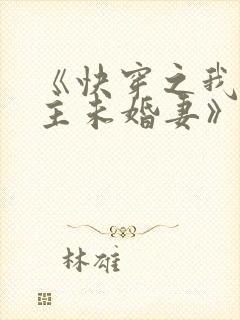 《快穿之我
主未婚妻》
林雄